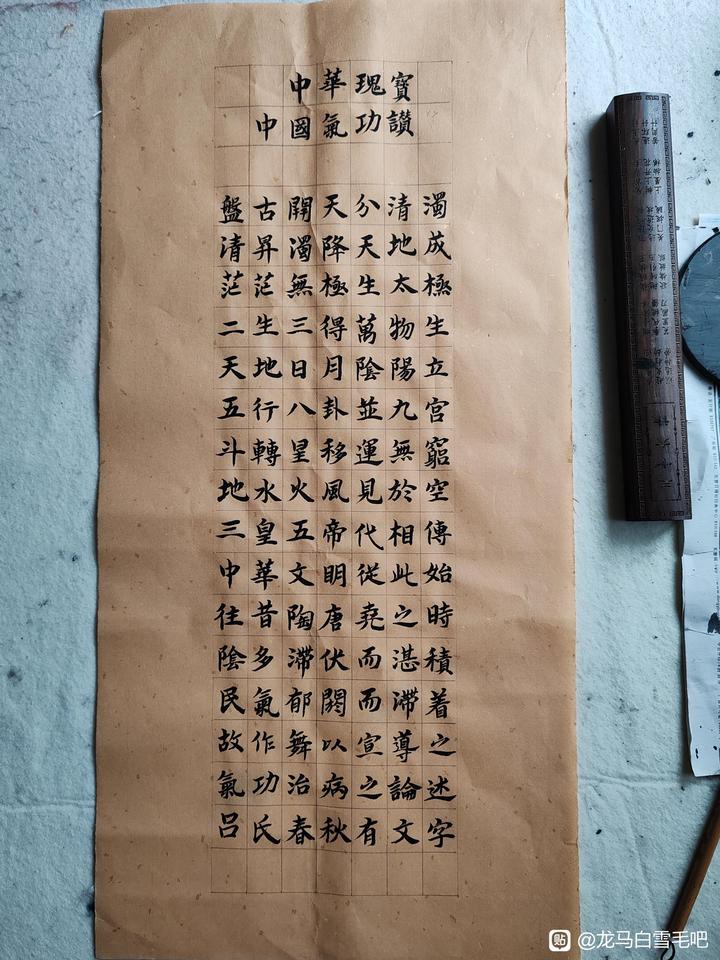 中華瑰寶
中國氣功讚
盤古開天分清濁
清昇濁降天地成
茫茫無極生太極
二生三得萬物生
天地日月陰陽立
五行八卦並九宮
斗轉星移運無窮
地水火風見於空
三皇五帝代相傳
中華文明從此始
往昔陶唐堯之時
陰多滯伏而湛積
民氣郁閼而滯着
故作舞以宣導之
氣功治病之論述
呂氏春秋有文字
貼 @龙马白雪毛吧